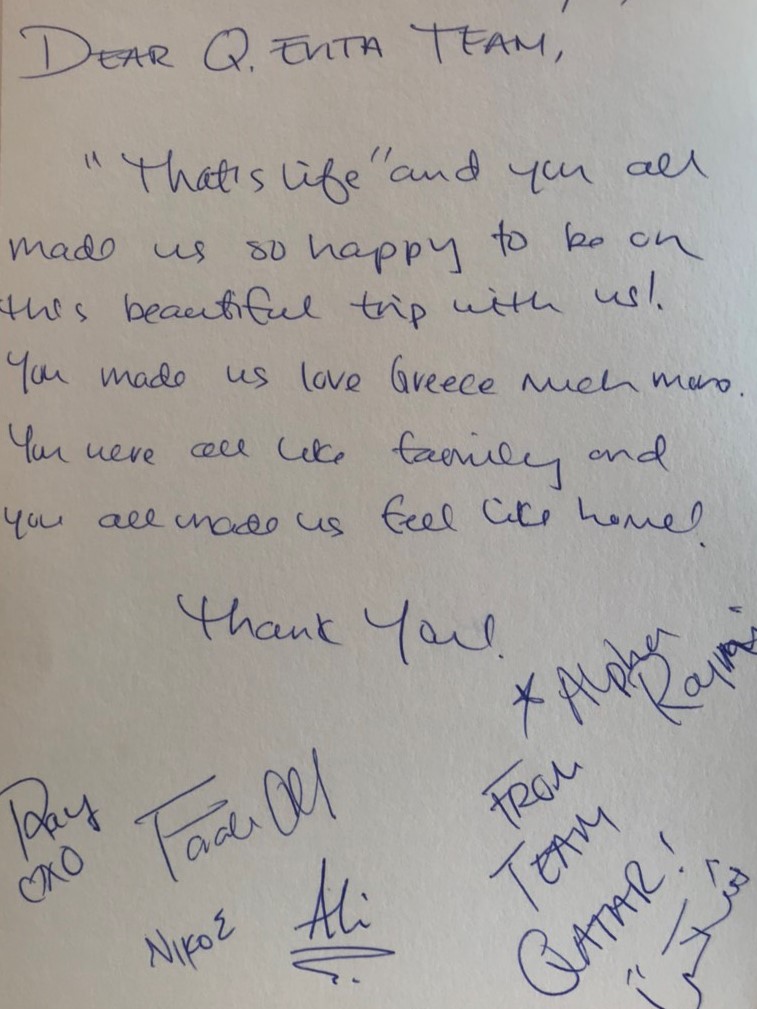 DEAR Q. EVITA TEAM,
"That's life" and you all
made us so happy to be on
this beautiful trip with us!
You made us love Greece much more.
You were all like family and
you all made us feel like home!
Thank You!
* Alpha
Ray
OXO
ΝΙΚΟΣ
Ali
FROM
TEAM
QATAR!